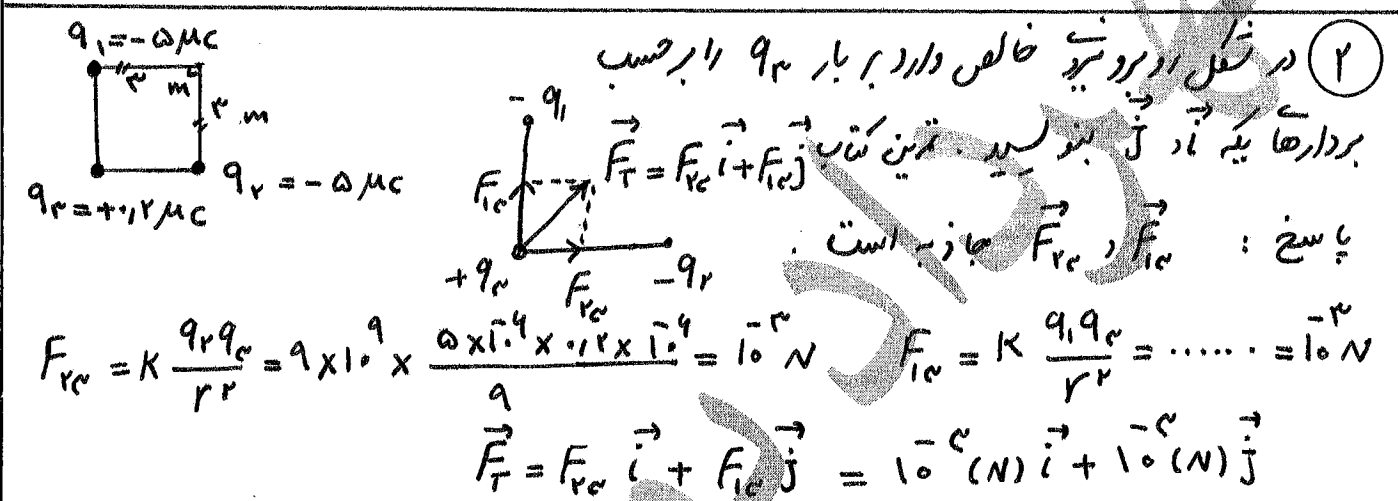 ۲ در شکل روبرو نیروی خالص وارد بر بار q۳ را برحسب
بردارهای یکه i⃗ و j⃗ بنویسید. تمرین کتاب
q۱ = -۵ μc
۳ m
۳ m
q۲ = -۵ μc
q۳ = +۰,۲ μc
- q۱
F⃗T = F۲۳ i⃗ + F۱۳ j⃗
F۱۳
+q۳
F۲۳
-q۲
پاسخ : F⃗۱۳ و F⃗۲۳ جاذبه است .
F۲۳ = K q۲q۳/r² = ۹×۱۰^۹ × (۵×۱۰^-۶ × ۰,۲ × ۱۰^-۶)/۹ = ۱۰^-۳ N F۱۳ = K q۱q۳/r² = ...... = ۱۰^-۳ N
F⃗T = F۲۳ i⃗ + F۱۳ j⃗ = ۱۰^-۳ (N) i⃗ + ۱۰^-۳ (N) j⃗